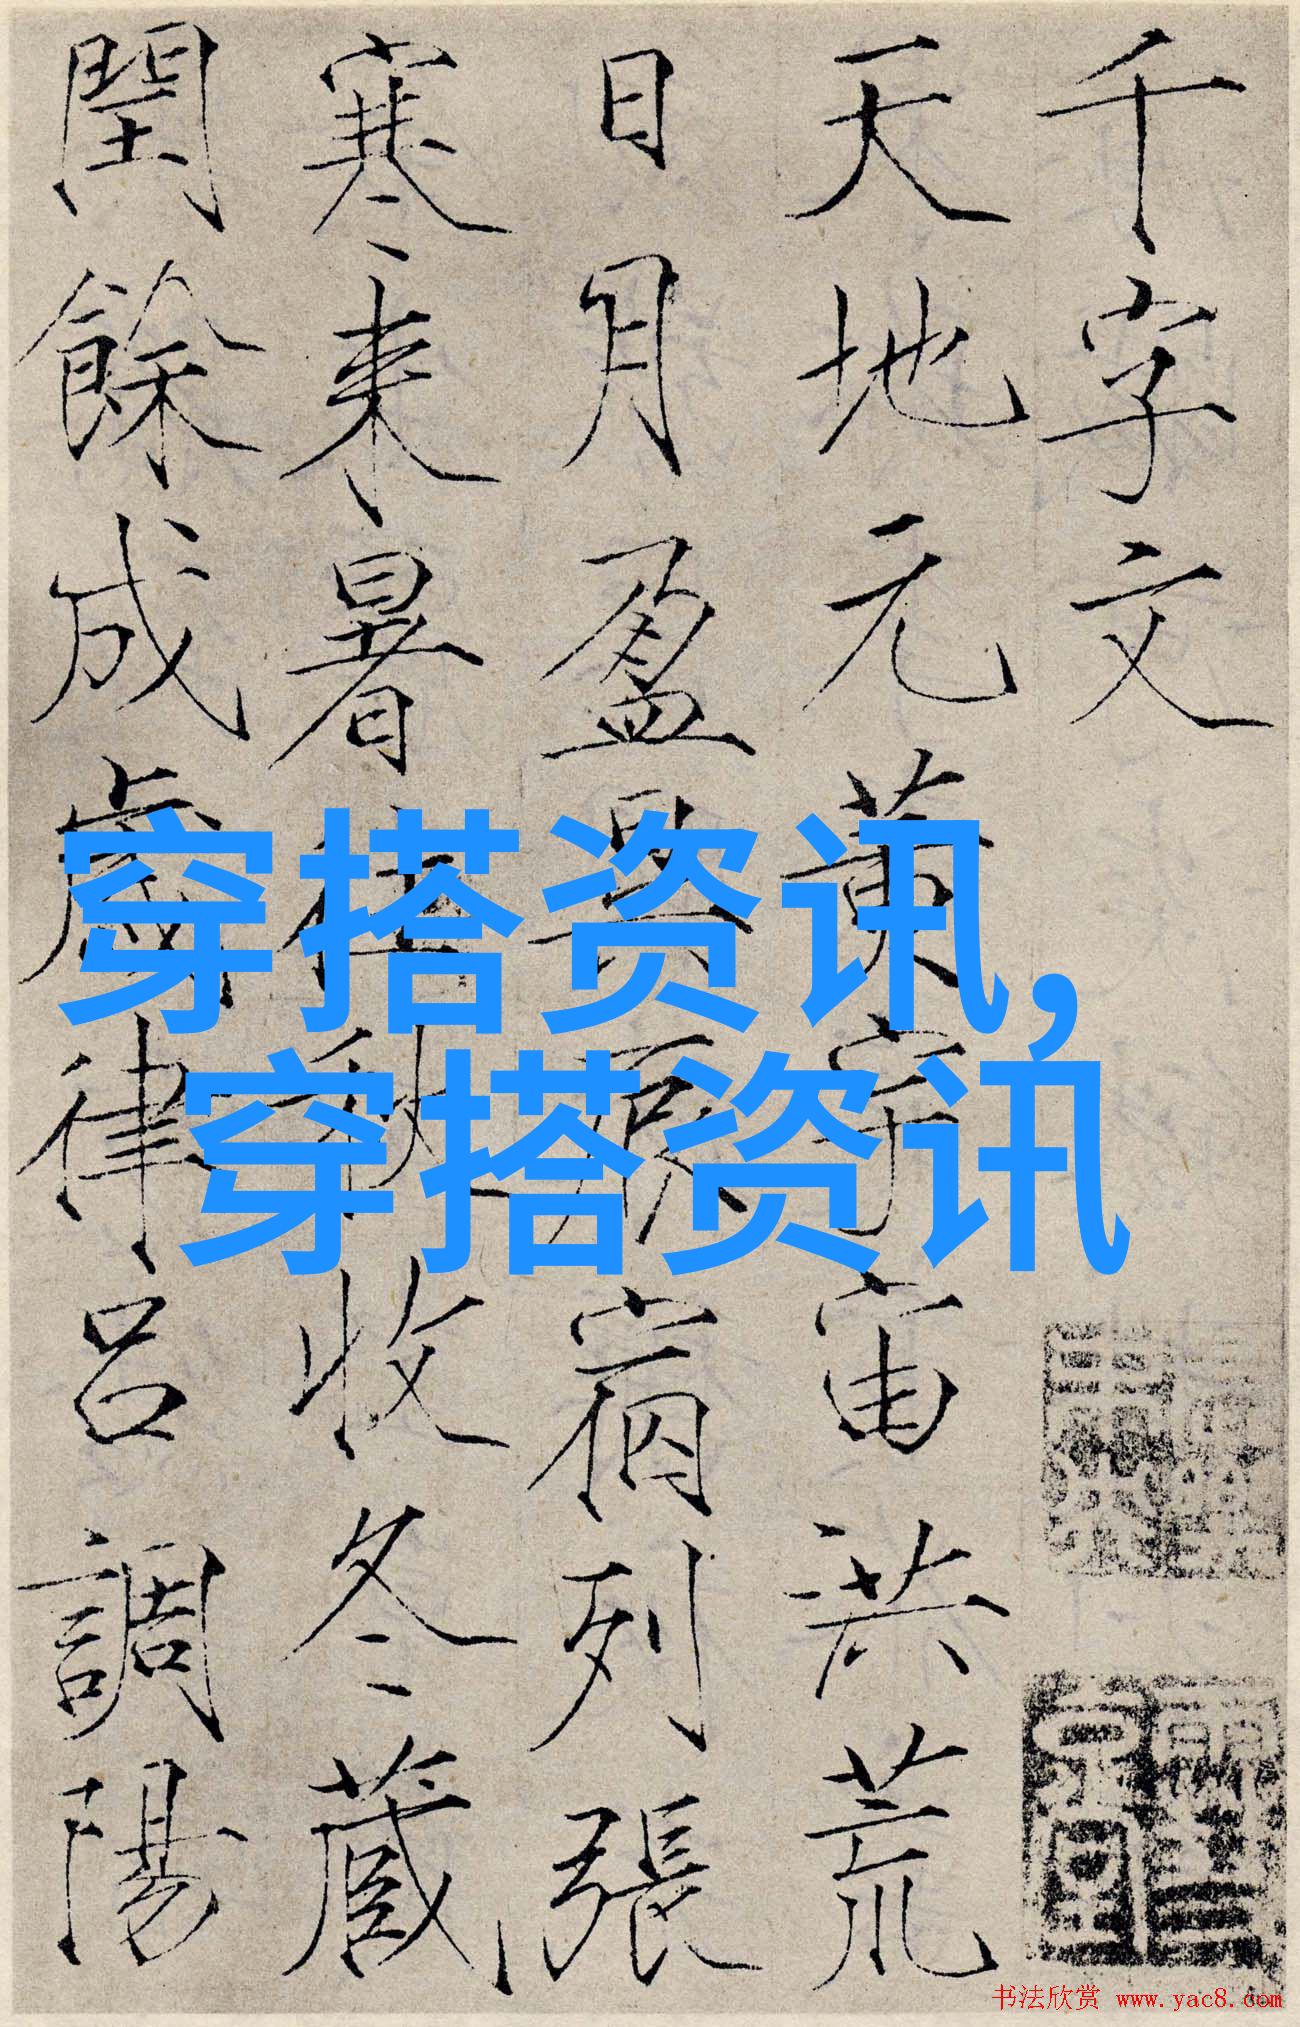 千字文
天地元黄宇宙洪荒
日月盈昃辰宿列張
寒来暑往秋收冬蔵
閏餘成歲律吕調陽
穿搭资讯,
穿搭资讯
书法欣赏 www.yac8.com